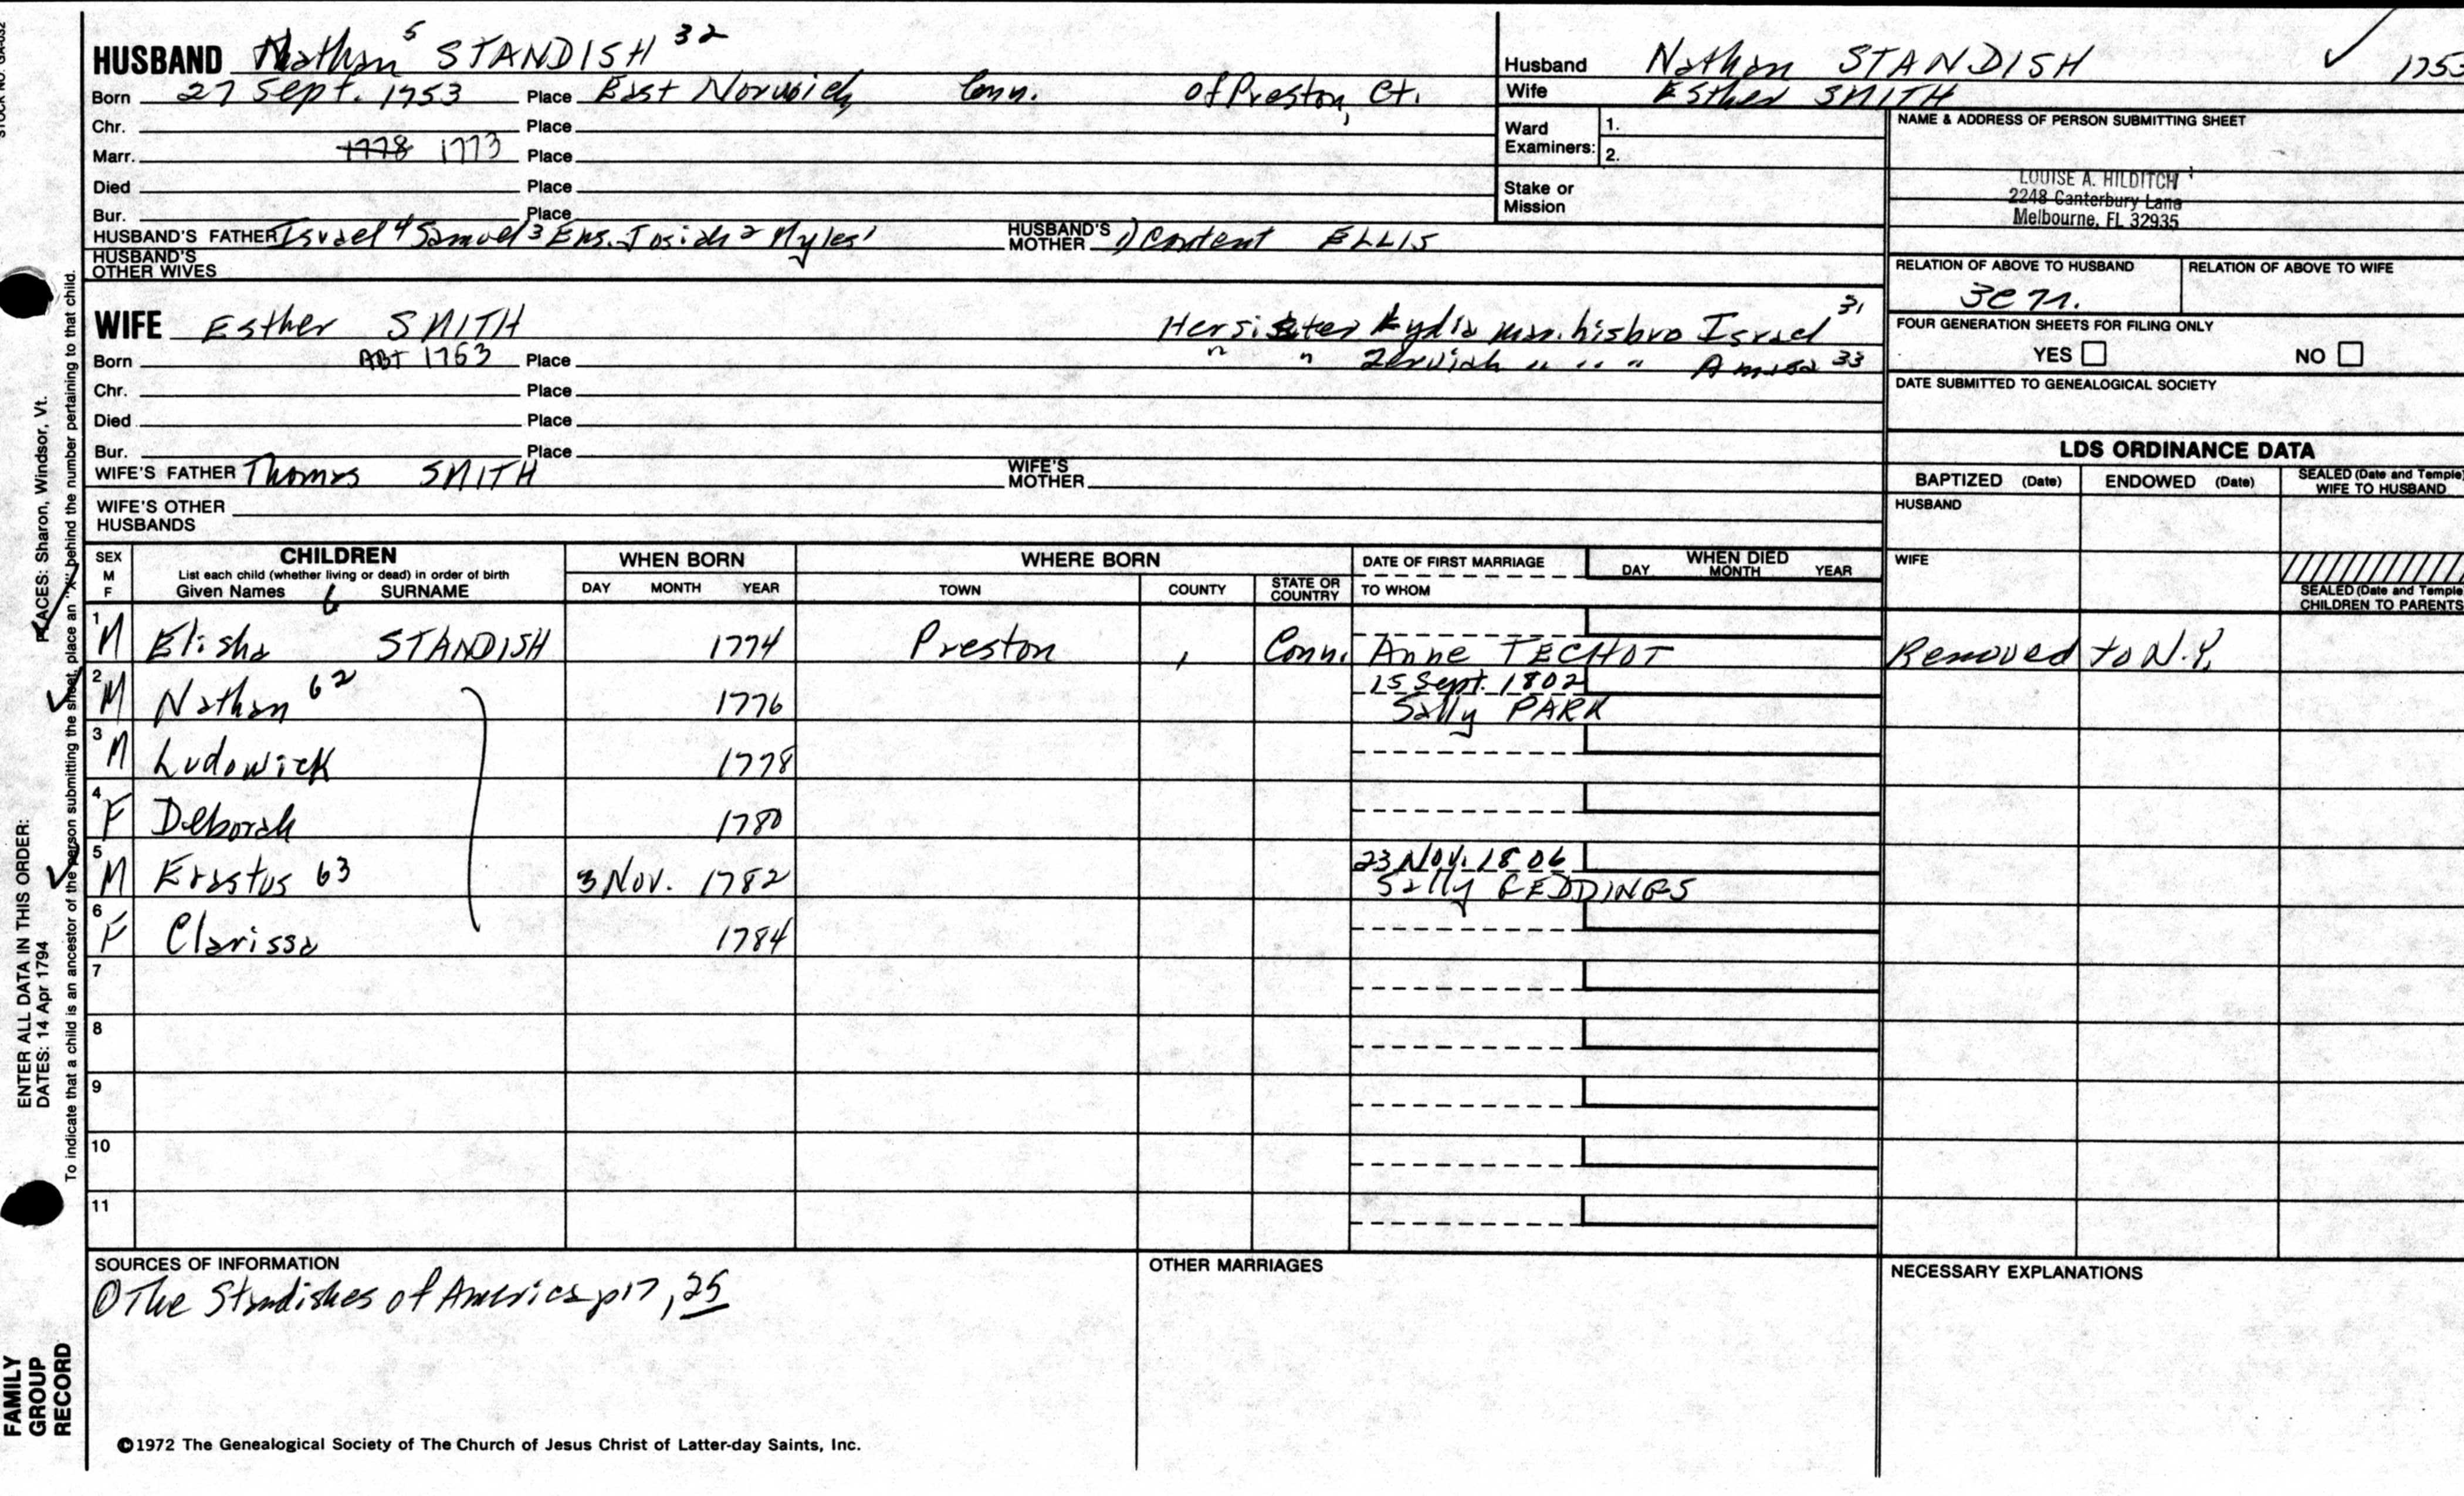 STOCK NO. GA-032
HUSBAND Nathan 5 STANDISH 32
Born 27 Sept. 1753 Place East Norwich, Conn. of Preston, Ct.
Chr. Place
Marr. 1778 1773 Place
Died Place
Bur. Place
HUSBAND'S FATHER Israel 4 Samuel 3 Ens. Josiah 2 Myles 1 HUSBAND'S MOTHER 1) Content ELLIS
HUSBAND'S OTHER WIVES
WIFE Esther SMITH Her sister Lydia marr. his bro Israel 31
Born ABT 1753 Place " " Zerviah " " " Amasa 33
Chr. Place
Died Place
Bur. Place
WIFE'S FATHER Thomas SMITH WIFE'S MOTHER
WIFE'S OTHER HUSBANDS
Husband Nathan STANDISH 1753
Wife Esther SMITH
Ward Examiners: 1.
2.
Stake or Mission
NAME & ADDRESS OF PERSON SUBMITTING SHEET
LOUISE A. HILDITCH
2248 Canterbury Lane
Melbourne, FL 32935
RELATION OF ABOVE TO HUSBAND RELATION OF ABOVE TO WIFE
FOUR GENERATION SHEETS FOR FILING ONLY
YES NO
DATE SUBMITTED TO GENEALOGICAL SOCIETY
LDS ORDINANCE DATA
BAPTIZED (Date) ENDOWED (Date) SEALED (Date and Temple) WIFE TO HUSBAND
HUSBAND
WIFE
SEALED (Date and Temple) CHILDREN TO PARENTS
SEX M F CHILDREN WHEN BORN WHERE BORN DATE OF FIRST MARRIAGE WHEN DIED
List each child (whether living or dead) in order of birth
Given Names 6 SURNAME DAY MONTH YEAR TOWN COUNTY STATE OR COUNTRY TO WHOM DAY MONTH YEAR
1 M Elisha STANDISH 1774 Preston , Conn. Anne TECHOT Removed to N.Y.
2 M Nathan 62 1776 15 Sept. 1802
Sally PARK
3 M Ludowick 1778
4 F Deborah 1780
5 M Erastus 63 3 Nov. 1782 23 Nov. 1806
Sally GEDDINGS
6 F Clarissa 1784
7
8
9
10
11
SOURCES OF INFORMATION
① The Standishes of America p17, 25
OTHER MARRIAGES
NECESSARY EXPLANATIONS
©1972 The Genealogical Society of The Church of Jesus Christ of Latter-day Saints, Inc.
FAMILY GROUP RECORD
ENTER ALL DATA IN THIS ORDER:
DATES: 14 Apr 1794
PLACES: Sharon, Windsor, Vt.
To indicate that a child is an ancestor of the person submitting the sheet, place an "X" behind the number pertaining to that child.